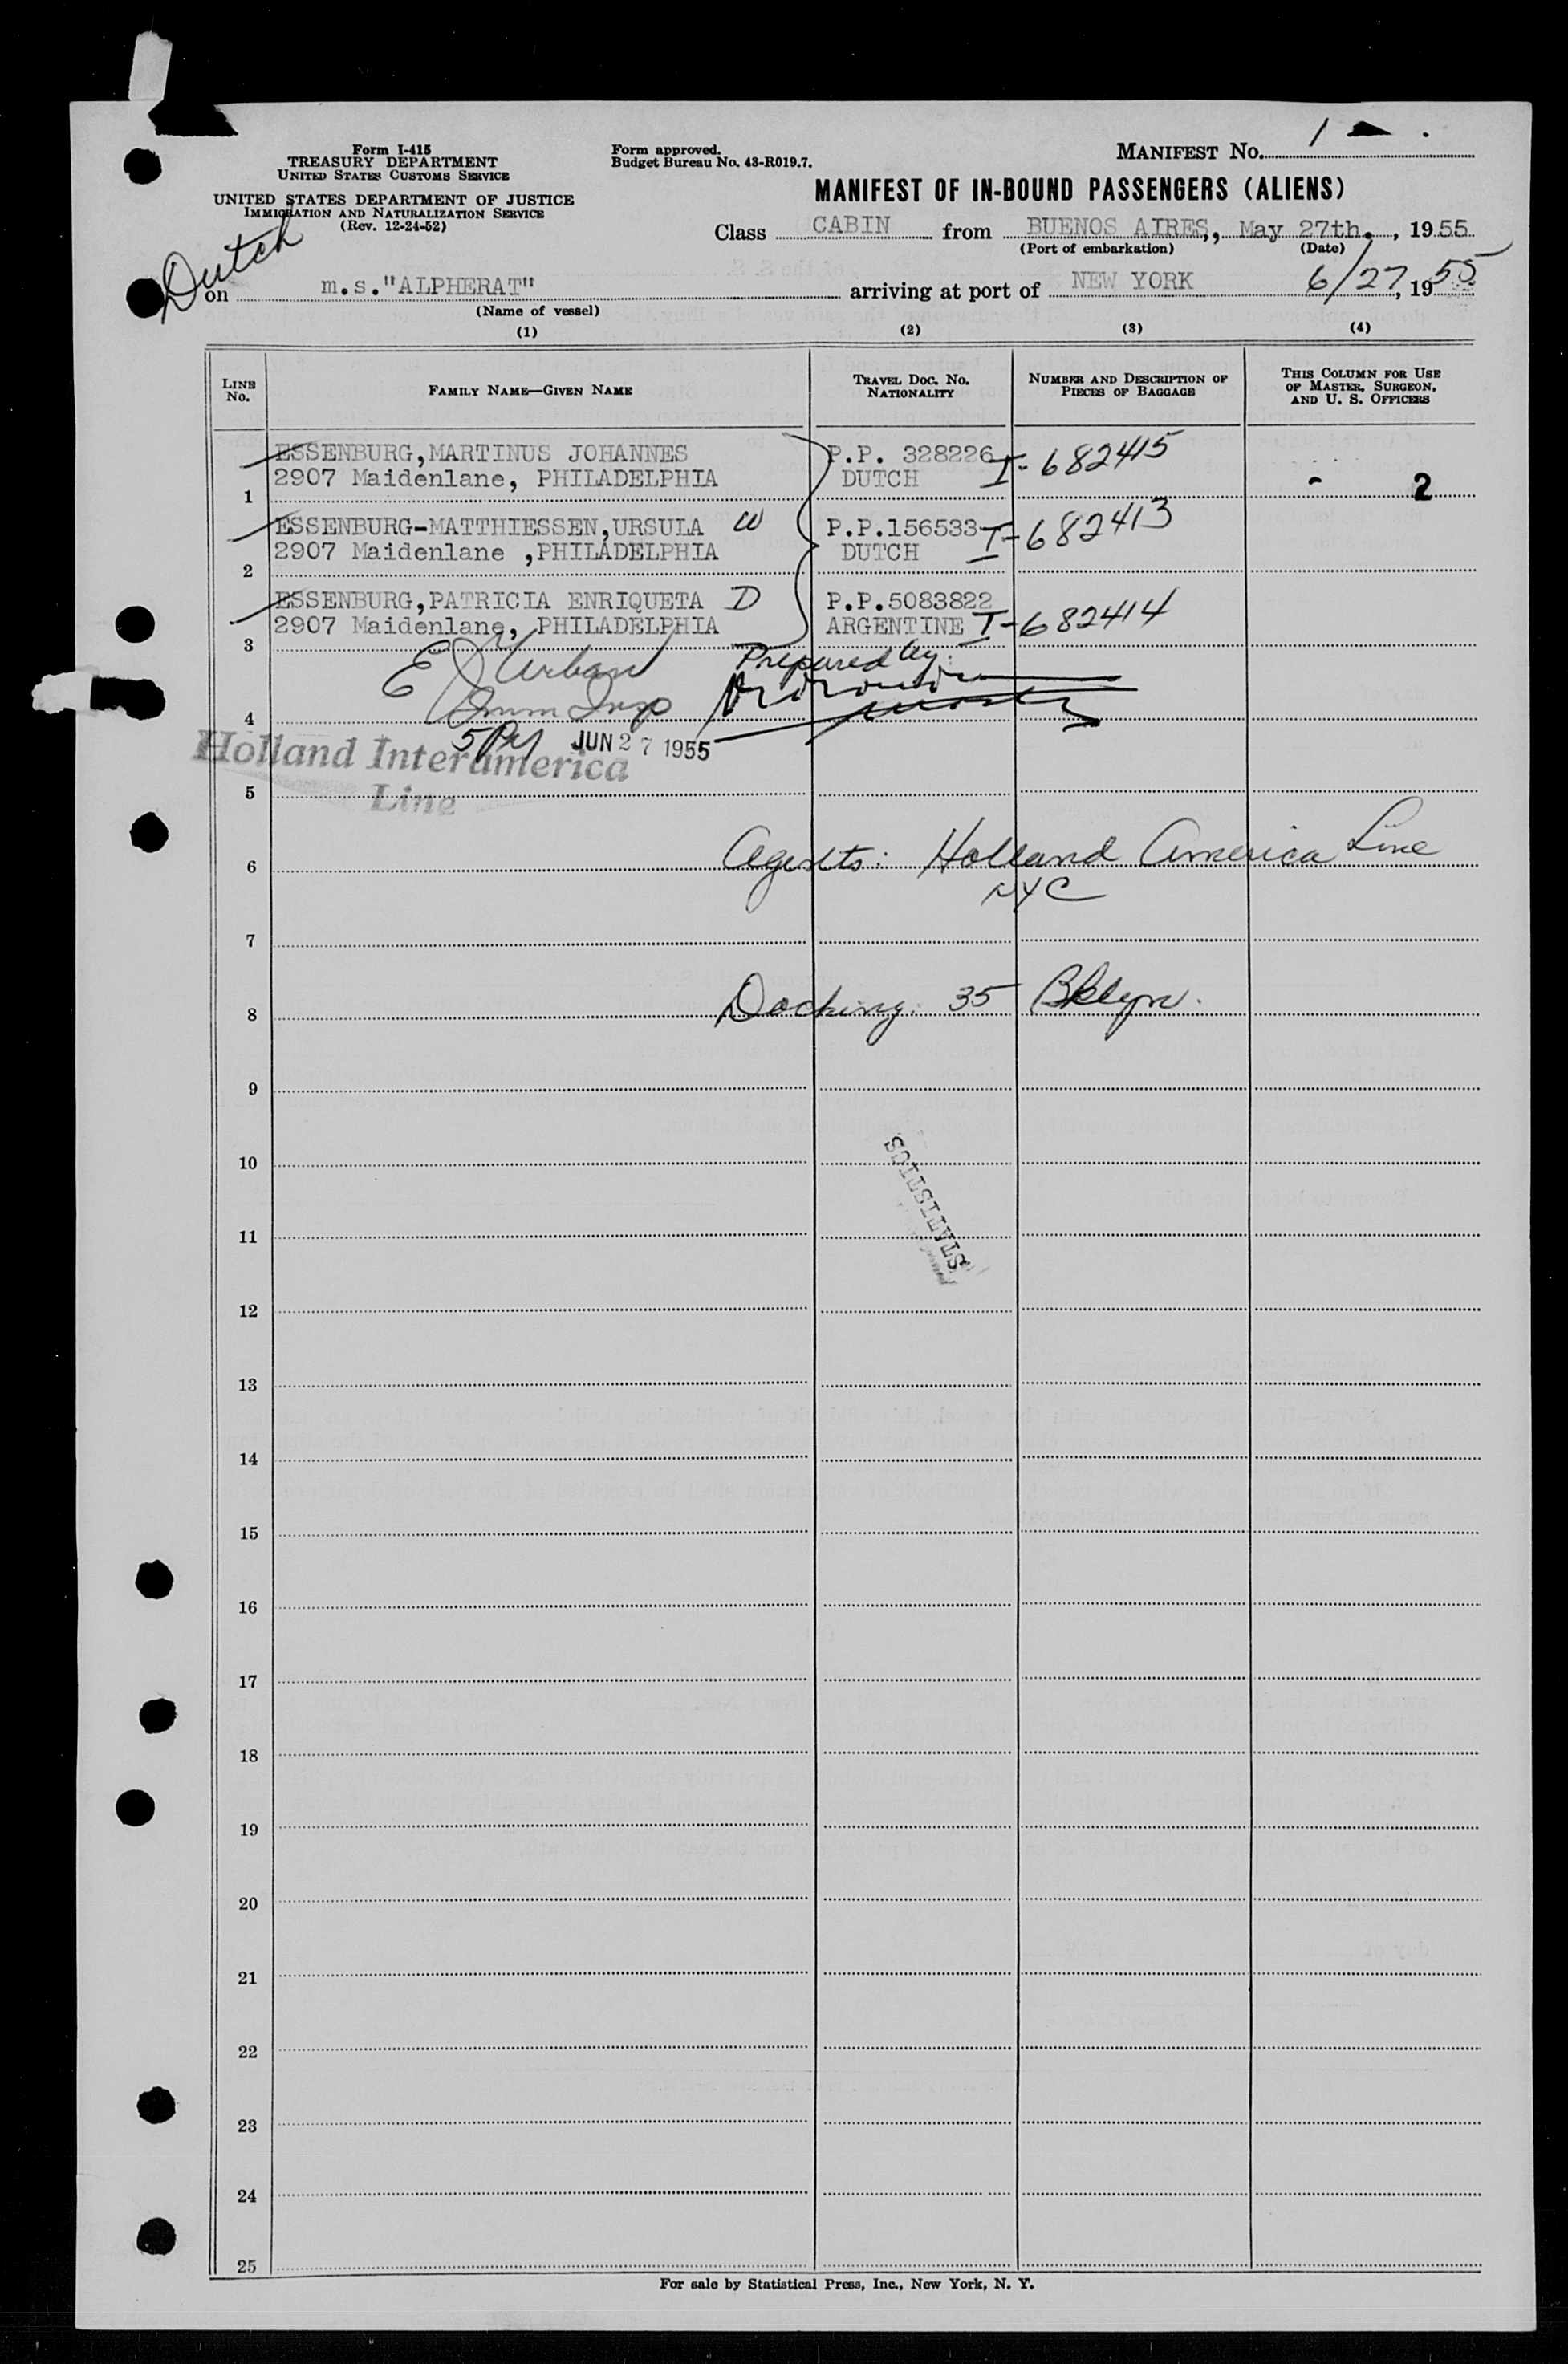 Form I-415
TREASURY DEPARTMENT
UNITED STATES CUSTOMS SERVICE
UNITED STATES DEPARTMENT OF JUSTICE
IMMIGRATION AND NATURALIZATION SERVICE
(Rev. 12-24-52)
Form approved.
Budget Bureau No. 43-R019.7.
MANIFEST No. 1
MANIFEST OF IN-BOUND PASSENGERS (ALIENS)
Class CABIN from BUENOS AIRES, May 27th. , 1955
(Port of embarkation) (Date)
Dutch
on m.s."ALPHERAT" arriving at port of NEW YORK 6/27, 1955
(Name of vessel)
(1) (2) (3) (4)
LINE No. FAMILY NAME—GIVEN NAME TRAVEL DOC. NO. NATIONALITY NUMBER AND DESCRIPTION OF PIECES OF BAGGAGE THIS COLUMN FOR USE OF MASTER, SURGEON, AND U. S. OFFICERS
ESSENBURG,MARTINUS JOHANNES P.P. 328226 I-682415
1 2907 Maidenlane, PHILADELPHIA DUTCH - 2
ESSENBURG-MATTHIESSEN,URSULA W P.P.156533 I-682413
2 2907 Maidenlane ,PHILADELPHIA DUTCH
ESSENBURG,PATRICIA ENRIQUETA D P.P.5083822 I-682414
3 2907 Maidenlane, PHILADELPHIA ARGENTINE
E J Urban Prepared by:
4 Imm Insp
JUN 27 1955
Holland Interamerica
Line
5
6 Agents: Holland America Line
NYC
7
8 Docking: 35 Bklyn.
9
10
STATISTICS
11
12
13
14
15
16
17
18
19
20
21
22
23
24
25
For sale by Statistical Press, Inc., New York, N. Y.